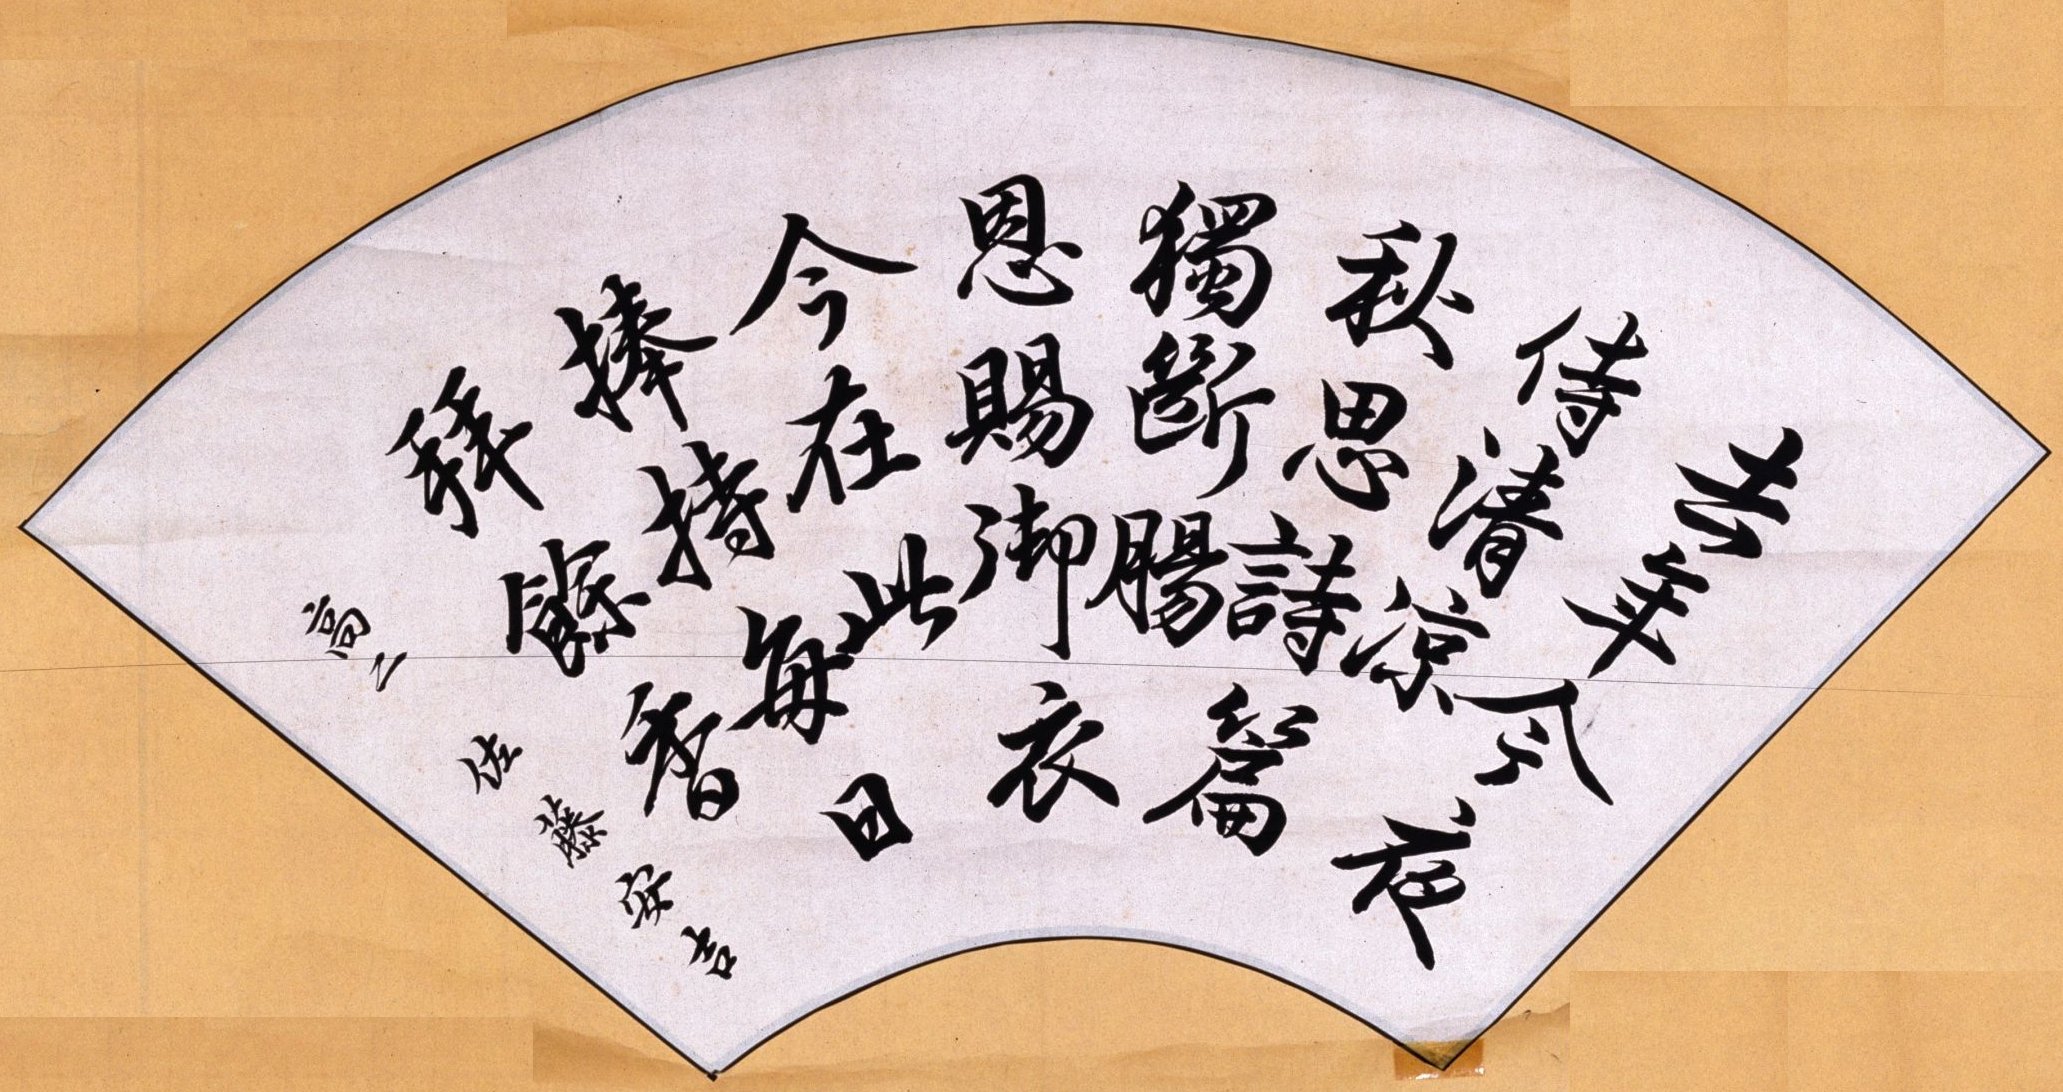 去年今夜
侍清涼
秋思詩篇
獨斷腸
恩賜御衣
今在此
捧持每日
拜餘香
高二
佐藤安吉